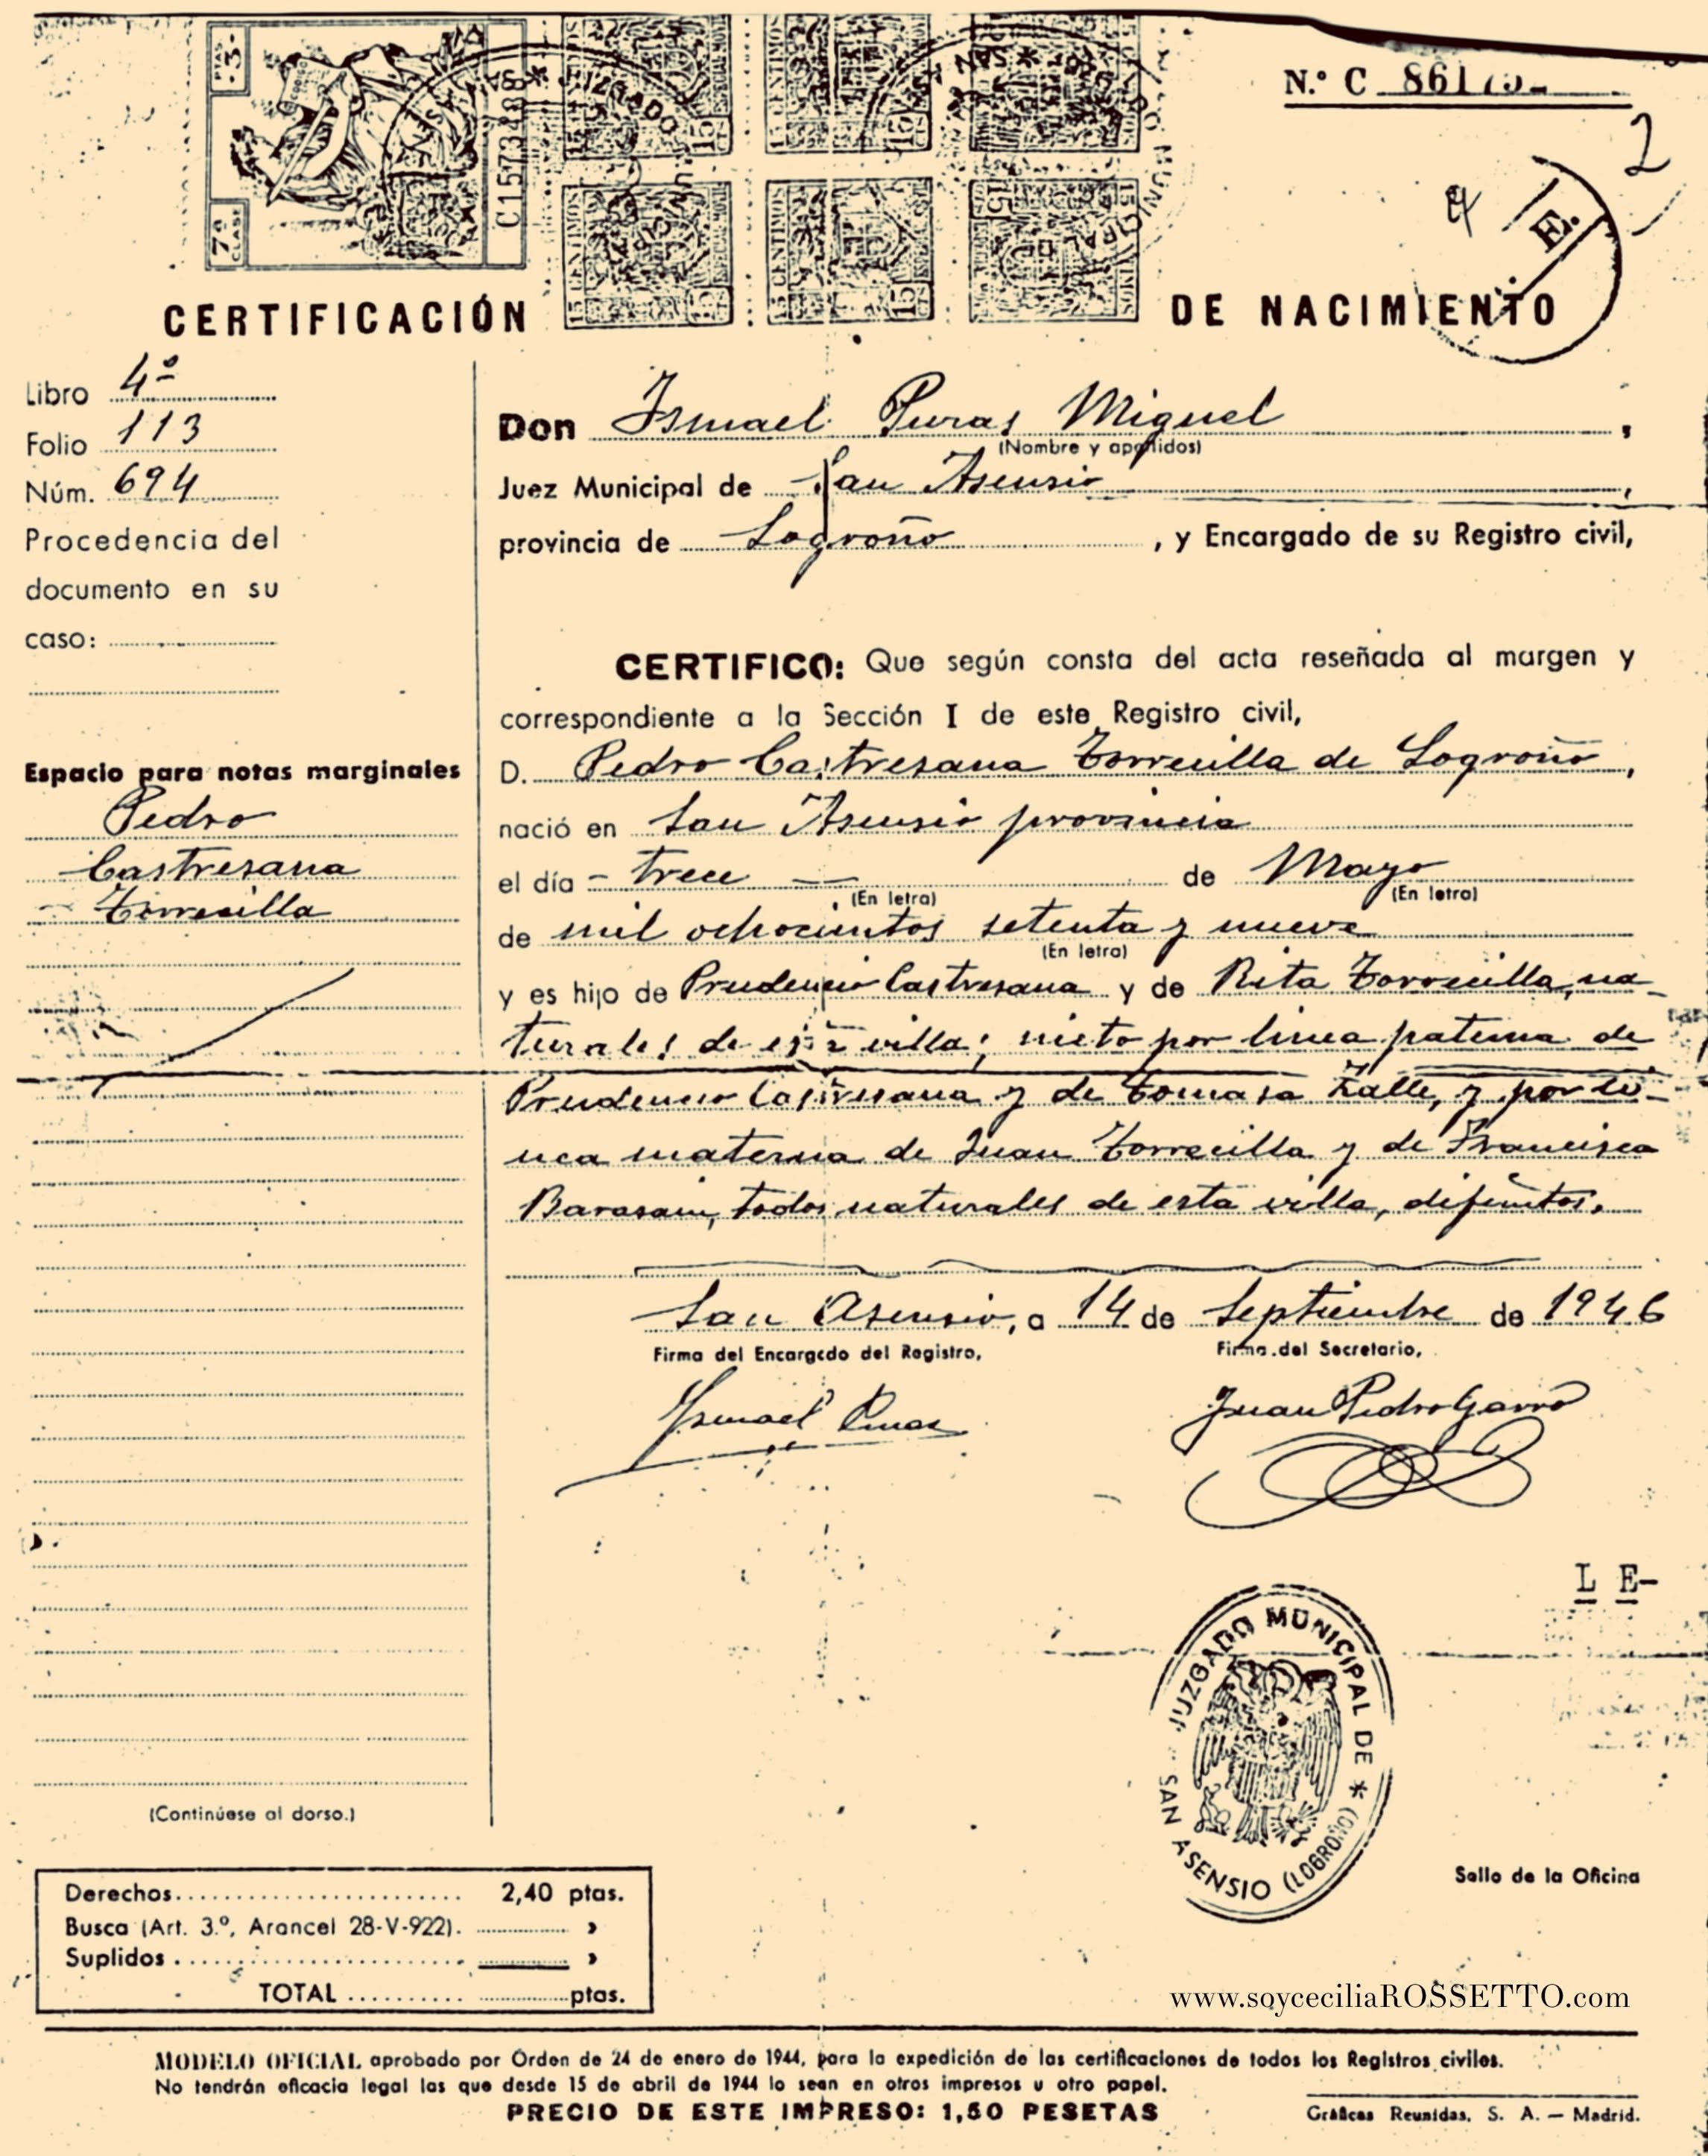 N.º C 8617
2
PTAS. 3
7ª CLASE
C1573488
15 CENTIMOS
E.
CERTIFICACIÓN DE NACIMIENTO
Libro 4º
Folio 113
Núm. 694
Procedencia del
documento en su
caso:
Espacio para notas marginales
Pedro
Castresana
Torrecilla
(Continúese al dorso.)
Don Ismael Puras Miguel,
(Nombre y apellidos)
Juez Municipal de San Asensio,
provincia de Logroño, y Encargado de su Registro civil,
CERTIFICO: Que según consta del acta reseñada al margen y
correspondiente a la Sección I de este Registro civil,
D. Pedro Castresana Torrecilla de Logroño,
nació en San Asensio provincia
el día trece de Mayo
(En letra) (En letra)
de mil ochocientos setenta y nueve
(En letra)
y es hijo de Prudencio Castresana y de Rita Torrecilla, na-
turales de esta villa; nieto por linea paterna de
Prudencio Castresana y de Tomasa Zalle, y por li-
nea materna de Juan Torrecilla y de Francisca
Barasain, todos naturales de esta villa, difuntos.
San Asensio, a 14 de Septiembre de 1946
Firma del Encargado del Registro, Firma del Secretario,
Ismael Puras Juan Pedro Garro
L E-
JUZGADO MUNICIPAL DE * SAN ASENSIO (LOGROÑO)
Sello de la Oficina
Derechos........................ 2,40 ptas.
Busca (Art. 3.º, Arancel 28-V-922). »
Suplidos........................ »
TOTAL .......... ptas.
www.soyceciliaROSSETTO.com
MODELO OFICIAL aprobado por Orden de 24 de enero de 1944, para la expedición de las certificaciones de todos los Registros civiles.
No tendrán eficacia legal las que desde 15 de abril de 1944 lo sean en otros impresos u otro papel.
PRECIO DE ESTE IMPRESO: 1,50 PESETAS
Gráficas Reunidas, S. A. — Madrid.